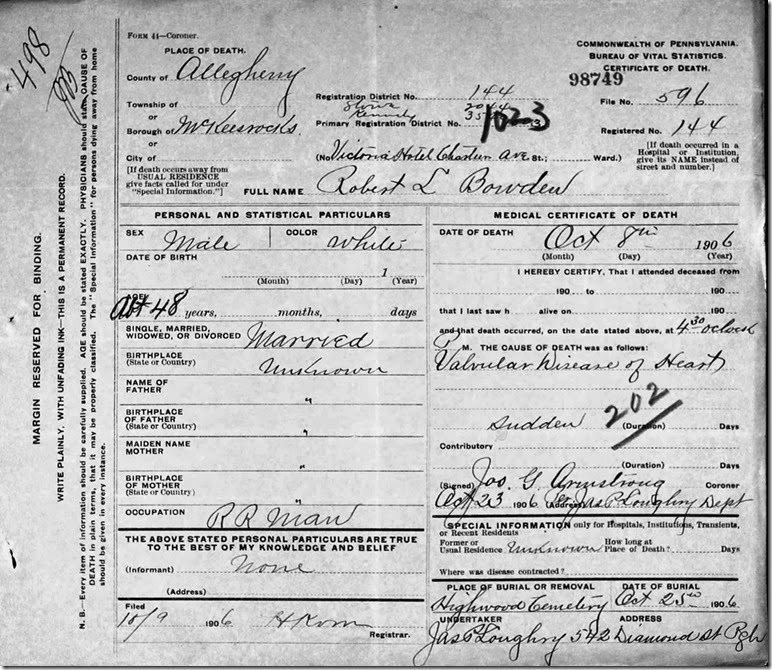 498
MARGIN RESERVED FOR BINDING.
WRITE PLAINLY, WITH UNFADING INK—THIS IS A PERMANENT RECORD.
N. B.—Every item of information should be carefully supplied. AGE should be stated EXACTLY. PHYSICIANS should state CAUSE OF
DEATH in plain terms, that it may be properly classified. The "Special Information" for persons dying away from home
should be given in every instance.
FORM 44—Coroner.
PLACE OF DEATH.
County of Allegheny
Township of
or
Borough of McKeesrocks
or
City of
[If death occurs away from
USUAL RESIDENCE
give facts called for under
"Special Information."]
COMMONWEALTH OF PENNSYLVANIA.
BUREAU OF VITAL STATISTICS.
CERTIFICATE OF DEATH.
98749
Registration District No. 144
File No. 596
Stowe
Kennedy
Primary Registration District No. 1023
Registered No. 144
(No. Victoria Hotel Chartiers Ave St.; Ward.)
[If death occurred in a
Hospital or Institution,
give its NAME instead of
street and number.]
FULL NAME Robert L Bowden
PERSONAL AND STATISTICAL PARTICULARS
SEX Male COLOR White
DATE OF BIRTH
1
(Month) (Day) (Year)
AGE
Abt 48 years, months, days
SINGLE, MARRIED,
WIDOWED, OR DIVORCED Married
BIRTHPLACE
(State or Country) Unknown
NAME OF
FATHER "
BIRTHPLACE
OF FATHER
(State or Country) "
MAIDEN NAME
MOTHER "
BIRTHPLACE
OF MOTHER
(State or Country) "
OCCUPATION R R Man
THE ABOVE STATED PERSONAL PARTICULARS ARE TRUE
TO THE BEST OF MY KNOWLEDGE AND BELIEF
(Informant) None
(Address)
Filed
10/9 1906
Registrar.
MEDICAL CERTIFICATE OF DEATH
DATE OF DEATH
Oct 8th 1906
(Month) (Day) (Year)
I HEREBY CERTIFY, That I attended deceased from
190 to 190
that I last saw h alive on 190
and that death occurred, on the date stated above, at 4 30 oclock
P M. THE CAUSE OF DEATH was as follows:
Valvular Disease of Heart
202
Sudden (Duration) Days
Contributory
(Duration) Days
(Signed) Jos. G. Armstrong Coroner
Oct 23 1906 (Address) Per Jas P Loughry Dept
SPECIAL INFORMATION only for Hospitals, Institutions, Transients,
or Recent Residents
Former or
Usual Residence Unknown
How long at
Place of Death? Days
Where was disease contracted?
PLACE OF BURIAL OR REMOVAL
Highwood Cemetery
DATE OF BURIAL
Oct 25th 1906
UNDERTAKER
Jas P Loughry
ADDRESS
542 Diamond St Pgh